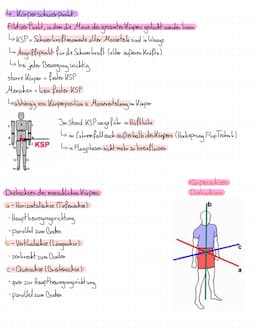 Körperschwerpunkt
Fiktiver Punkt, in dem die Masse des gesamten Körpers gedacht werden kann
↳ KSP = Schwerkraftmomente aller Masseteile sind in Waage
↳ Angriffspunkt für die Schwerkraft (aller äußeren Kräfte)
↳ bei jeder Bewegung wichtig
starre Körper = fester KSP
Menschen = kein fester KSP
↳ abhängig von Körperposition u. Masseverteilung im Körper
KSP
Im Stand KSP ungefähr in Hüfthöhe
↳ im Extremfall auch außerhalb des Körpers (Hochsprung Flop Technik)
↳ in Flugphasen nicht mehr zu beeinflussen
Drehachsen des menschlichen Körpers
a - Horizontalachse (Tiefenachse)
- Hauptbewegungsrichtung
- parallel zum Boden
b - Vertikalachse (Längsachse)
- senkrecht zum Boden
c - Querachse (Breitenachse)
- quer zur Hauptbewegungsrichtung
- parallel zum Boden
Körperachsen
Drehachsen
b
c
a